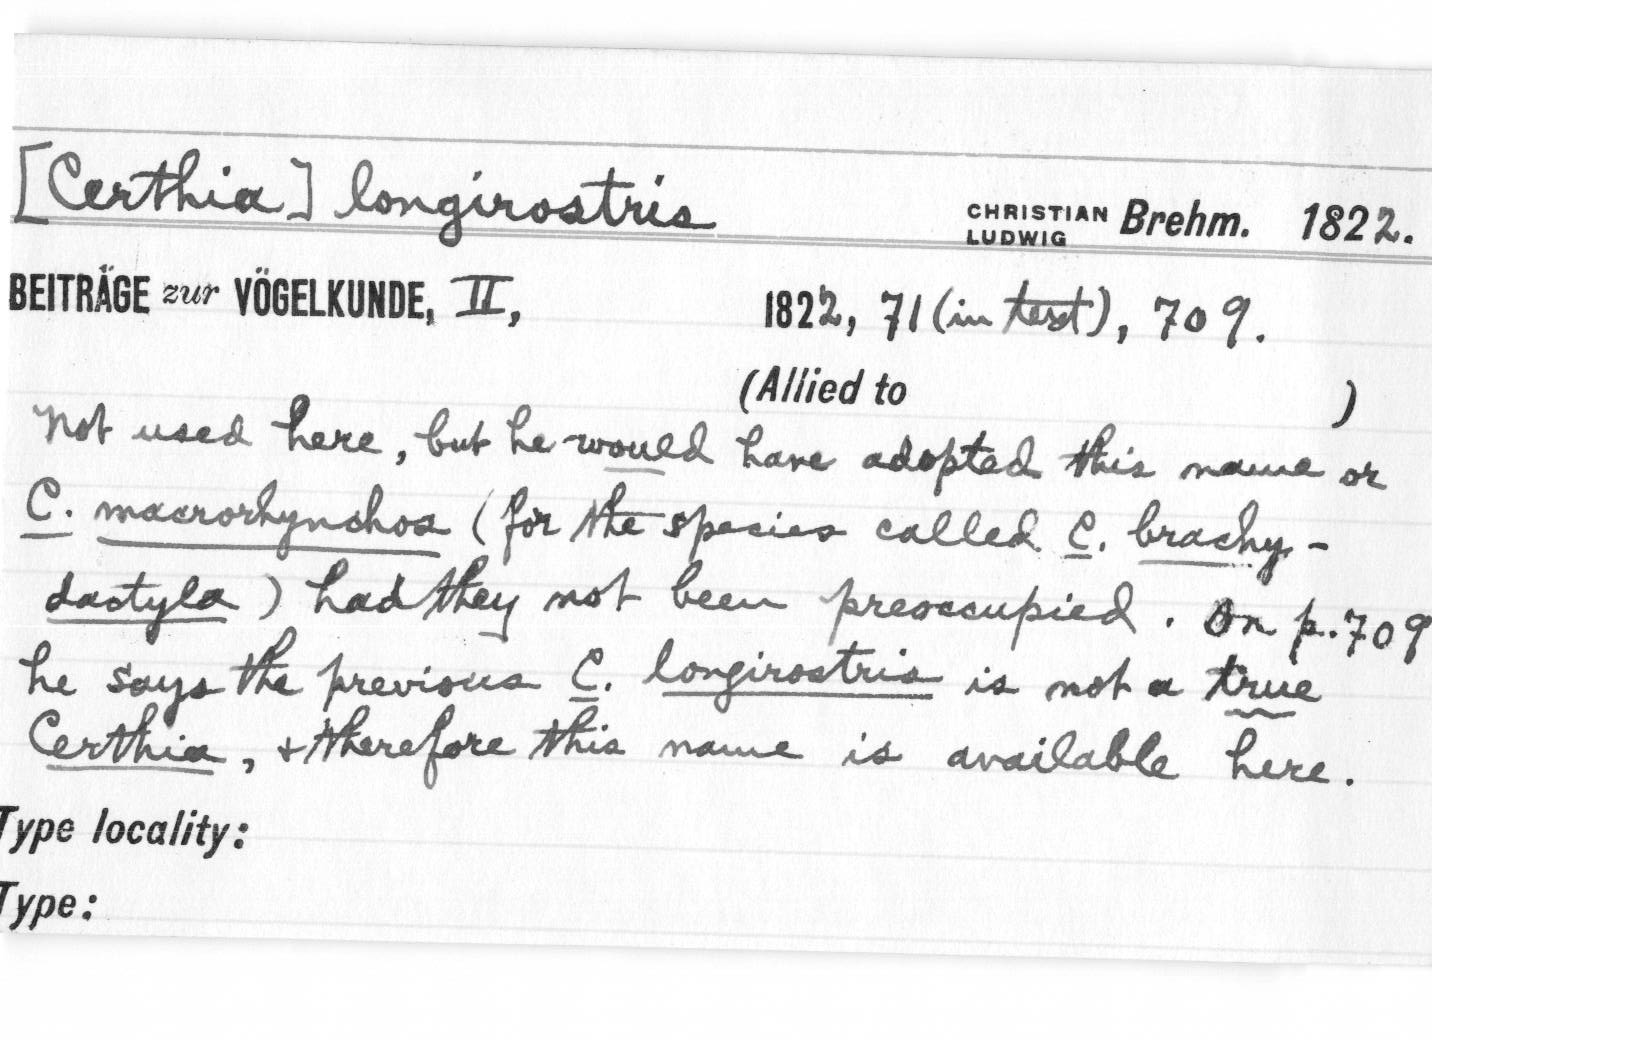 [Certhia] longirostris CHRISTIAN LUDWIG Brehm. 1822.
BEITRÄGE zur VÖGELKUNDE, II, 1822, 71 (in text), 709.
(Allied to )
Not used here, but he would have adopted this name or
C. macrorhynchos (for the species called C. brachy-
dactyla) had they not been preoccupied. On p. 709
he says the previous C. longirostris is not a true
Certhia, & therefore this name is available here.
Type locality:
Type: